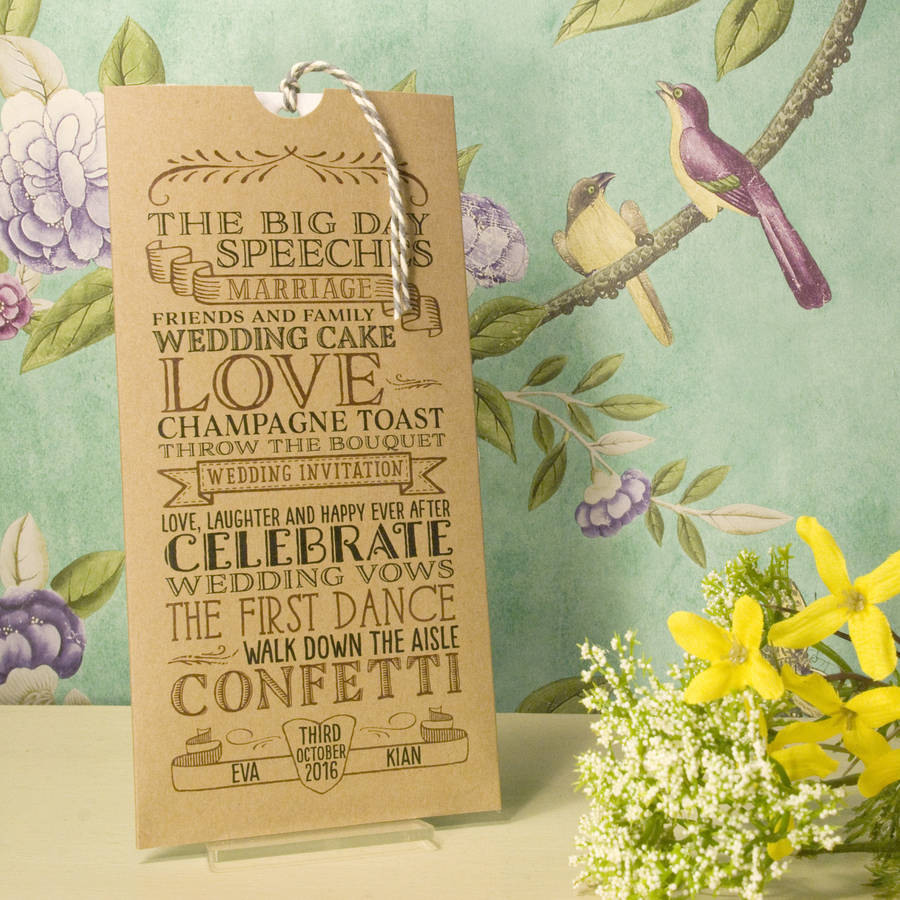 THE BIG DAY
SPEECHES
MARRIAGE
FRIENDS AND FAMILY
WEDDING CAKE
LOVE
CHAMPAGNE TOAST
THROW THE BOUQUET
WEDDING INVITATION
LOVE, LAUGHTER AND HAPPY EVER AFTER
CELEBRATE
WEDDING VOWS
THE FIRST DANCE
WALK DOWN THE AISLE
CONFETTI
THIRD
OCTOBER
2016
EVA
KIAN